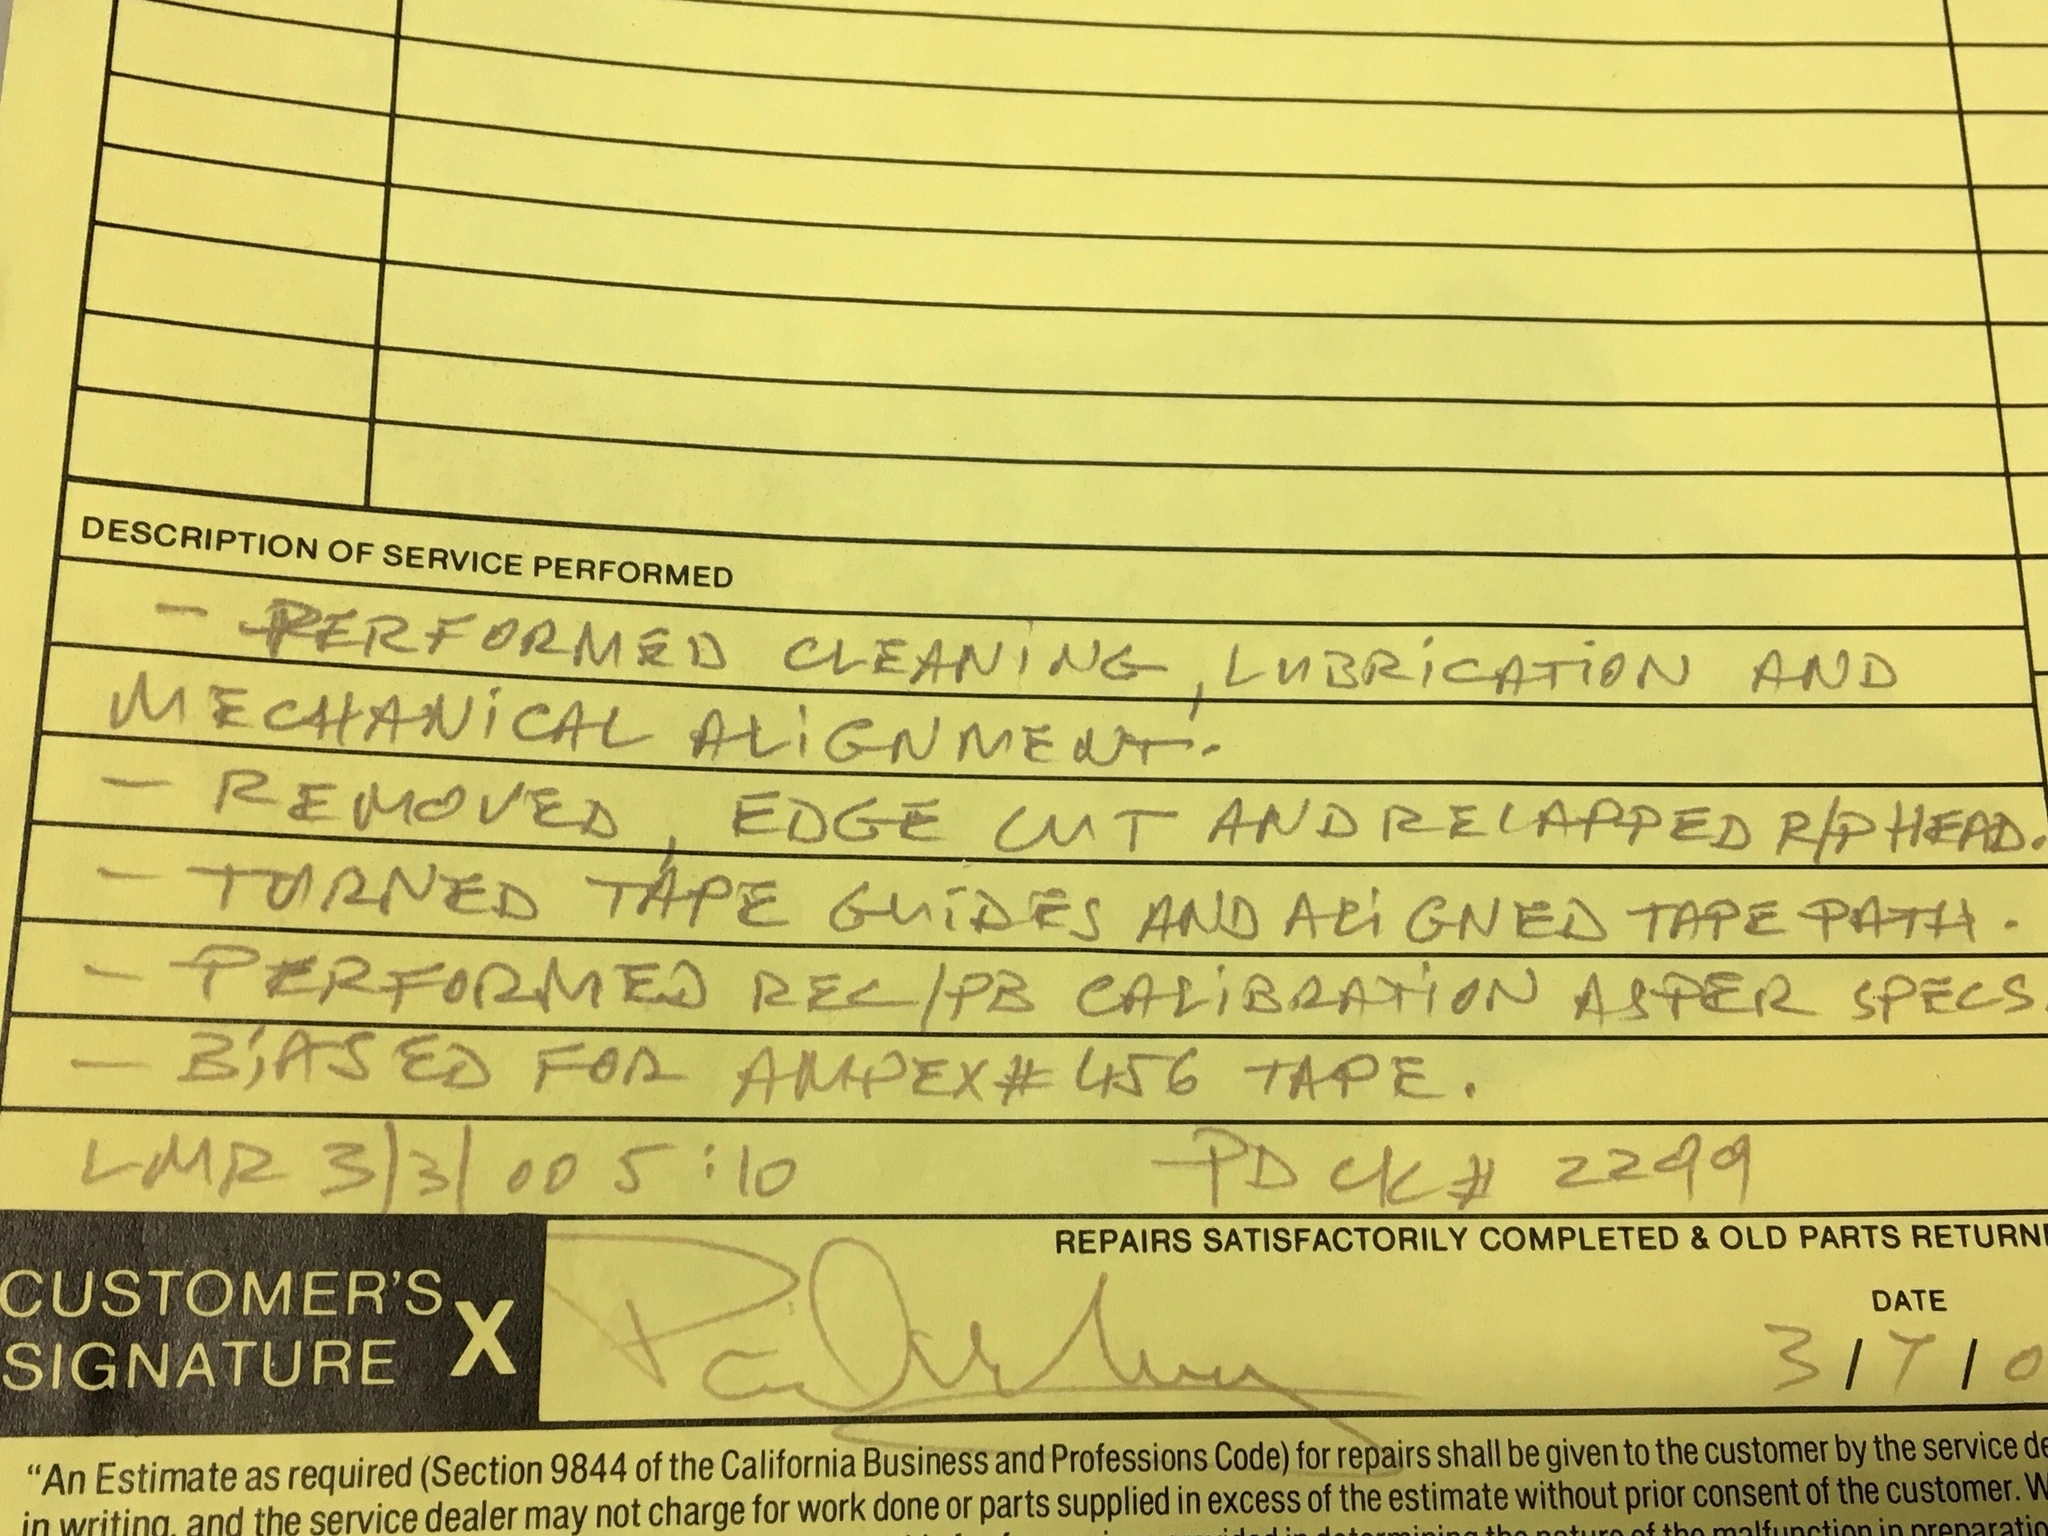 DESCRIPTION OF SERVICE PERFORMED
- PERFORMED CLEANING, LUBRICATION AND
MECHANICAL ALIGNMENT.
- REMOVED, EDGE CUT AND RELAPPED R/P HEAD.
- TURNED TAPE GUIDES AND ALIGNED TAPE PATH.
- PERFORMED REC/PB CALIBRATION AS PER SPECS.
- BIASED FOR AMPEX # 456 TAPE.
LMR 3/3/00 5:10 PD CK# 2299
REPAIRS SATISFACTORILY COMPLETED & OLD PARTS
CUSTOMER'S
SIGNATURE X
DATE
3/7/0
"An Estimate as required (Section 9844 of the California Business and Professions Code) for repairs shall be given to the customer by the service
in writing, and the service dealer may not charge for work done or parts supplied in excess of the estimate without prior consent of the customer.